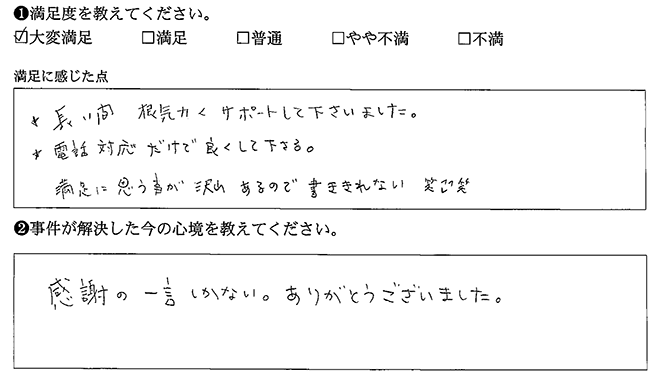 ❶満足度を教えてください。
☑大変満足 □満足 □普通 □やや不満 □不満
満足に感じた点
* 長い間 根気力く サポートして下さいました。
* 電話対応だけで良くして下さる。
満足に思う事が沢山あるので書ききれない 笑
❷事件が解決した今の心境を教えてください。
感謝の一言しかない。ありがとうございました。